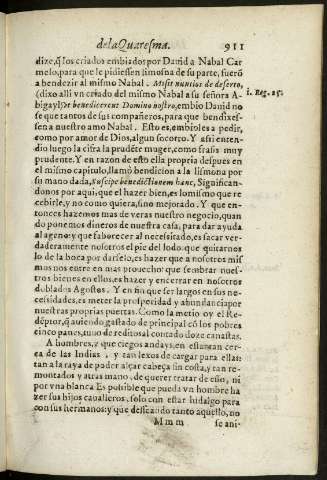 dela Quaresma. 911
dize, q̃ los criados embiados por Dauid a Nabal Car
melo, para que le pidiessen limosna de su parte, fuerõ
a bendezir al mismo Nabal. Misit nuntios de deserto,
(dixo alli vn criado del mismo Nabal a su señora A-
bigayl) vt benedicerent Domino nostro, embio Dauid no
se que tantos de sus compañeros, para que bendixes-
sen a nuestro amo Nabal. Esto es, embioles a pedir,
como por amor de Dios, algun socorro. Y assi enten-
dio luego la cifra la prudẽte muger, como frasis muy
prudente. Y en razon de esto ella propria despues en
el mismo capitulo, llamò bendicion a la limosna por
su mano dada, Suscipe benedictionem hanc, Significan-
donos por aqui, que el hazer bien, es lo mismo que re
cebirle, y no como quiera, sino mejorado. Y que en-
tonces hazemos mas de veras nuestro negocio, quan
do ponemos dineros de nuestra casa, para dar ayuda
al ageno: y que fauorecer al necessitado, es sacar ver-
daderamente nosotros el pie del lodo: que quitarnos
lo de la boca por darselo, es hazer que a nosotros mis
mos nos entre en mas prouecho: que sembrar nues-
tros bienes en ellos, es hazer y encerrar en nosotros
doblados Agostos. Y en fin que ser largos en sus ne-
cessidades, es meter la prosperidad y abundancia por
nuestras proprias puertas. Como la metio oy el Re-
dẽptor, q̃ auiendo gastado de principal cõ los pobres
cinco panes, tuuo de reditos al contado doze canastas.
A hombres, y que ciegos andays, en essas tan cer-
ca de las Indias, y tan lexos de cargar para ellas:
tan a la raya de poder alçar cabeça sin costa, y tan re-
montados y atras mano, de querer tratar de esso, ni
por vna blanca Es posible que pueda vn hombre ha
zer sus hijos caualleros, solo con estar hidalgo para
con sus hermanos: y que desseando tanto aquello, no
Mmm se ani-
1. Reg. 25.